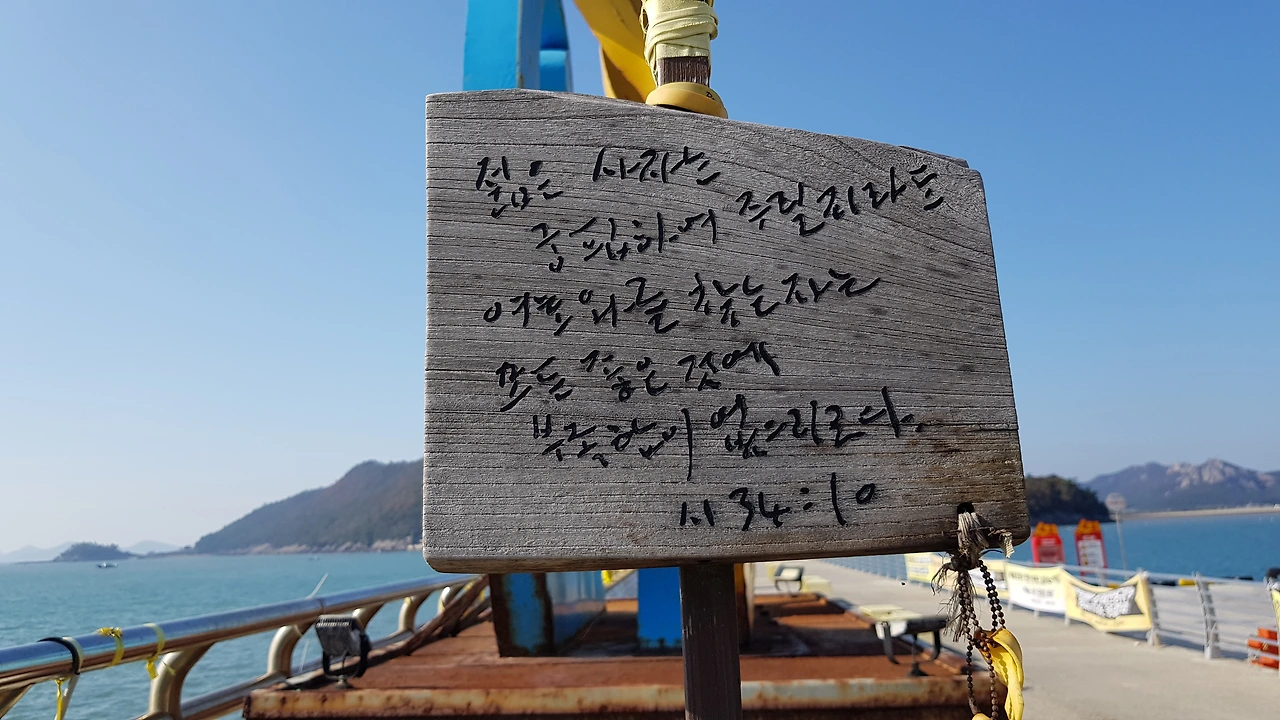 젊은 사자는
궁핍하여 주릴지라도
여호와를 찾는자는
모든 좋은 것에
부족함이 없으리로다.
시 34:10